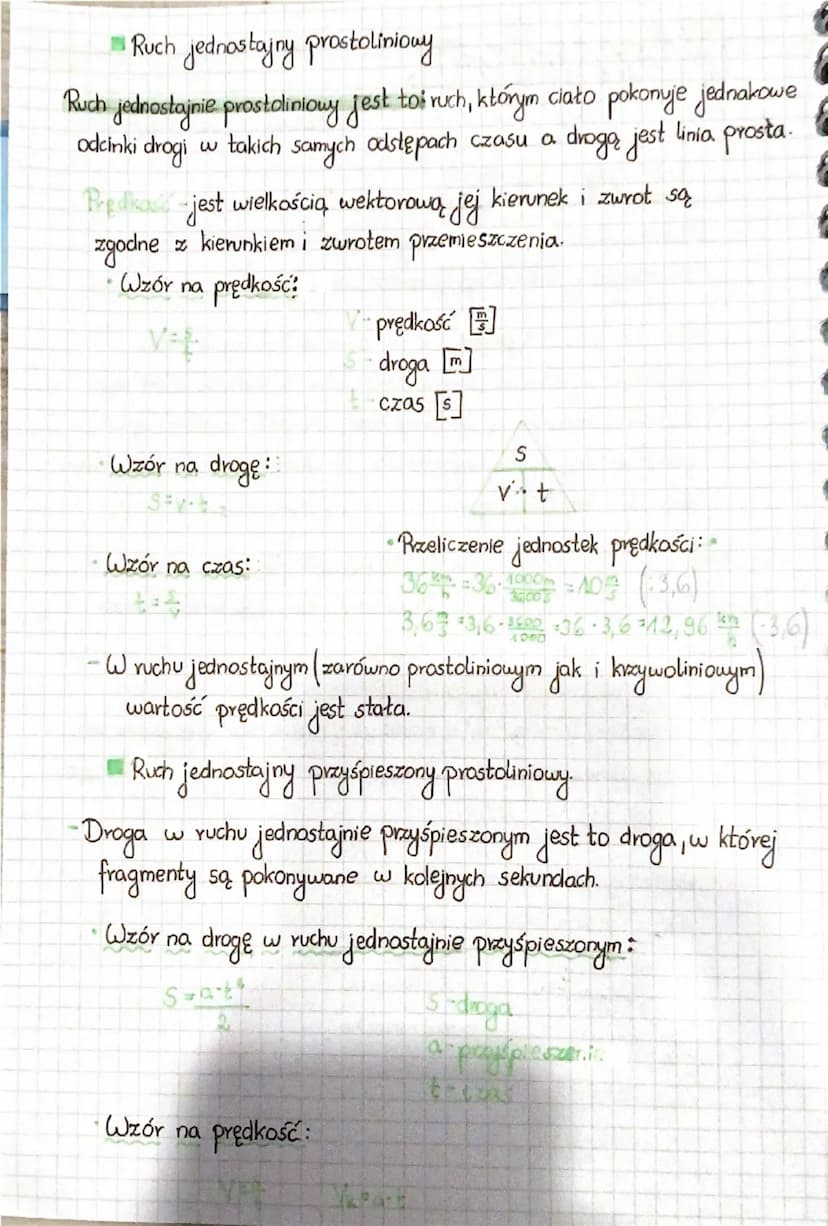 Ruch jednostajny prostoliniowy
Ruch jednostajnie prostoliniowy jest to: ruch, którym ciało pokonuje jednakowe
odcinki drogi w takich samych odstępach czasu a drogą jest linia prosta.
Prędkość - jest wielkością wektorową, jej kierunek i zwrot są
zgodne z kierunkiem i zwrotem przemieszczenia.
• Wzór na prędkość:
V = s/t
V - prędkość [m/s]
S - droga [m]
t - czas [s]
• Wzór na drogę:
S = v · t
s
v · t
• Wzór na czas:
t = s/v
• Przeliczenie jednostek prędkości: •
36 km/h = 36 · 1000m/3600s = 10 m/s (:3,6)
3,6 m/s = 3,6 · 3600/1000 = 36 · 3,6 = 12,96 km/h (·3,6)
- W ruchu jednostajnym (zarówno prostoliniowym jak i krzywoliniowym)
wartość prędkości jest stała.
Ruch jednostajny przyśpieszony prostoliniowy.
- Droga w ruchu jednostajnie przyśpieszonym jest to droga, w której
fragmenty są pokonywane w kolejnych sekundach.
• Wzór na drogę w ruchu jednostajnie przyśpieszonym:
S = a·t²/2
S - droga
a - przyśpieszenie
t - czas
• Wzór na prędkość:
Vk = a·t